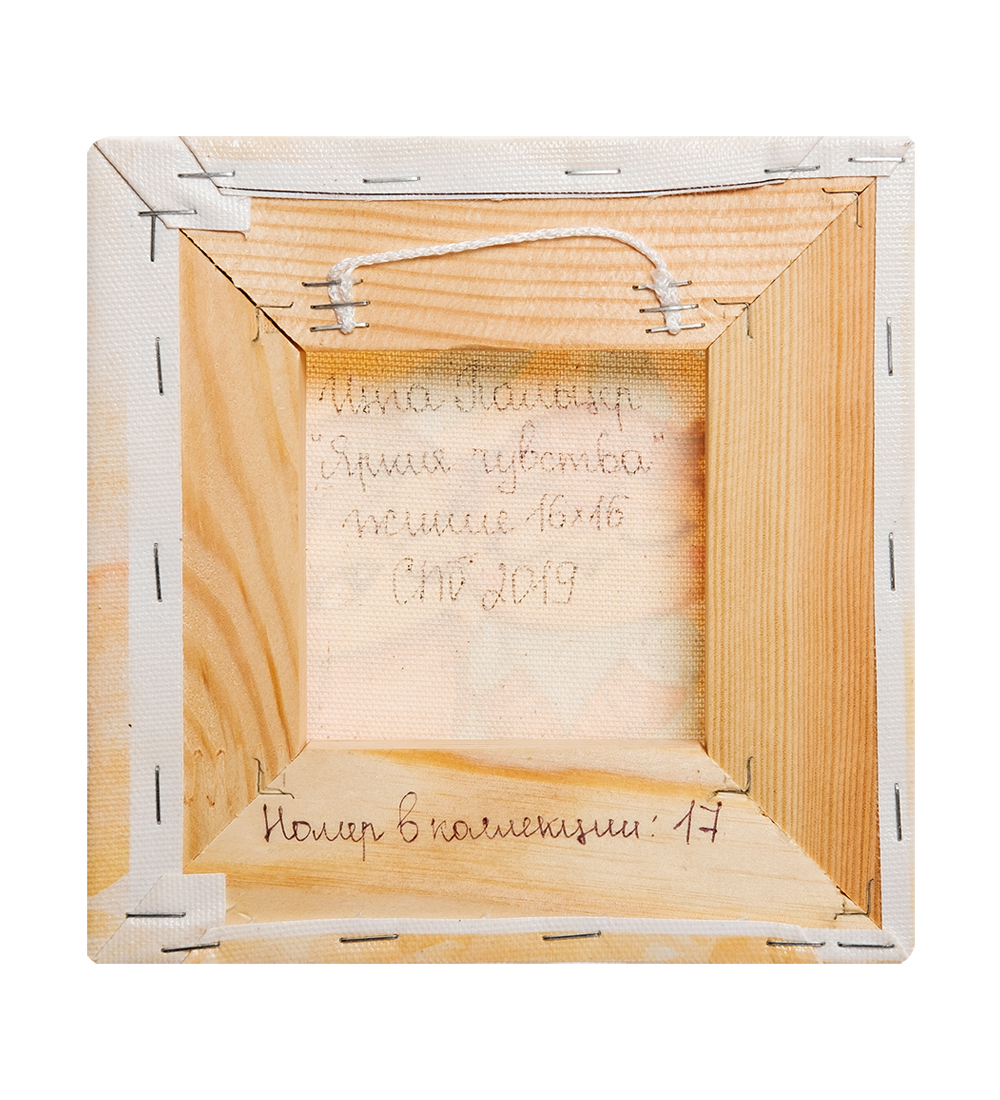 Инна Пальцер
"Яркие чувства"
16x16
СПб 2019
Номер в коллекции: 17